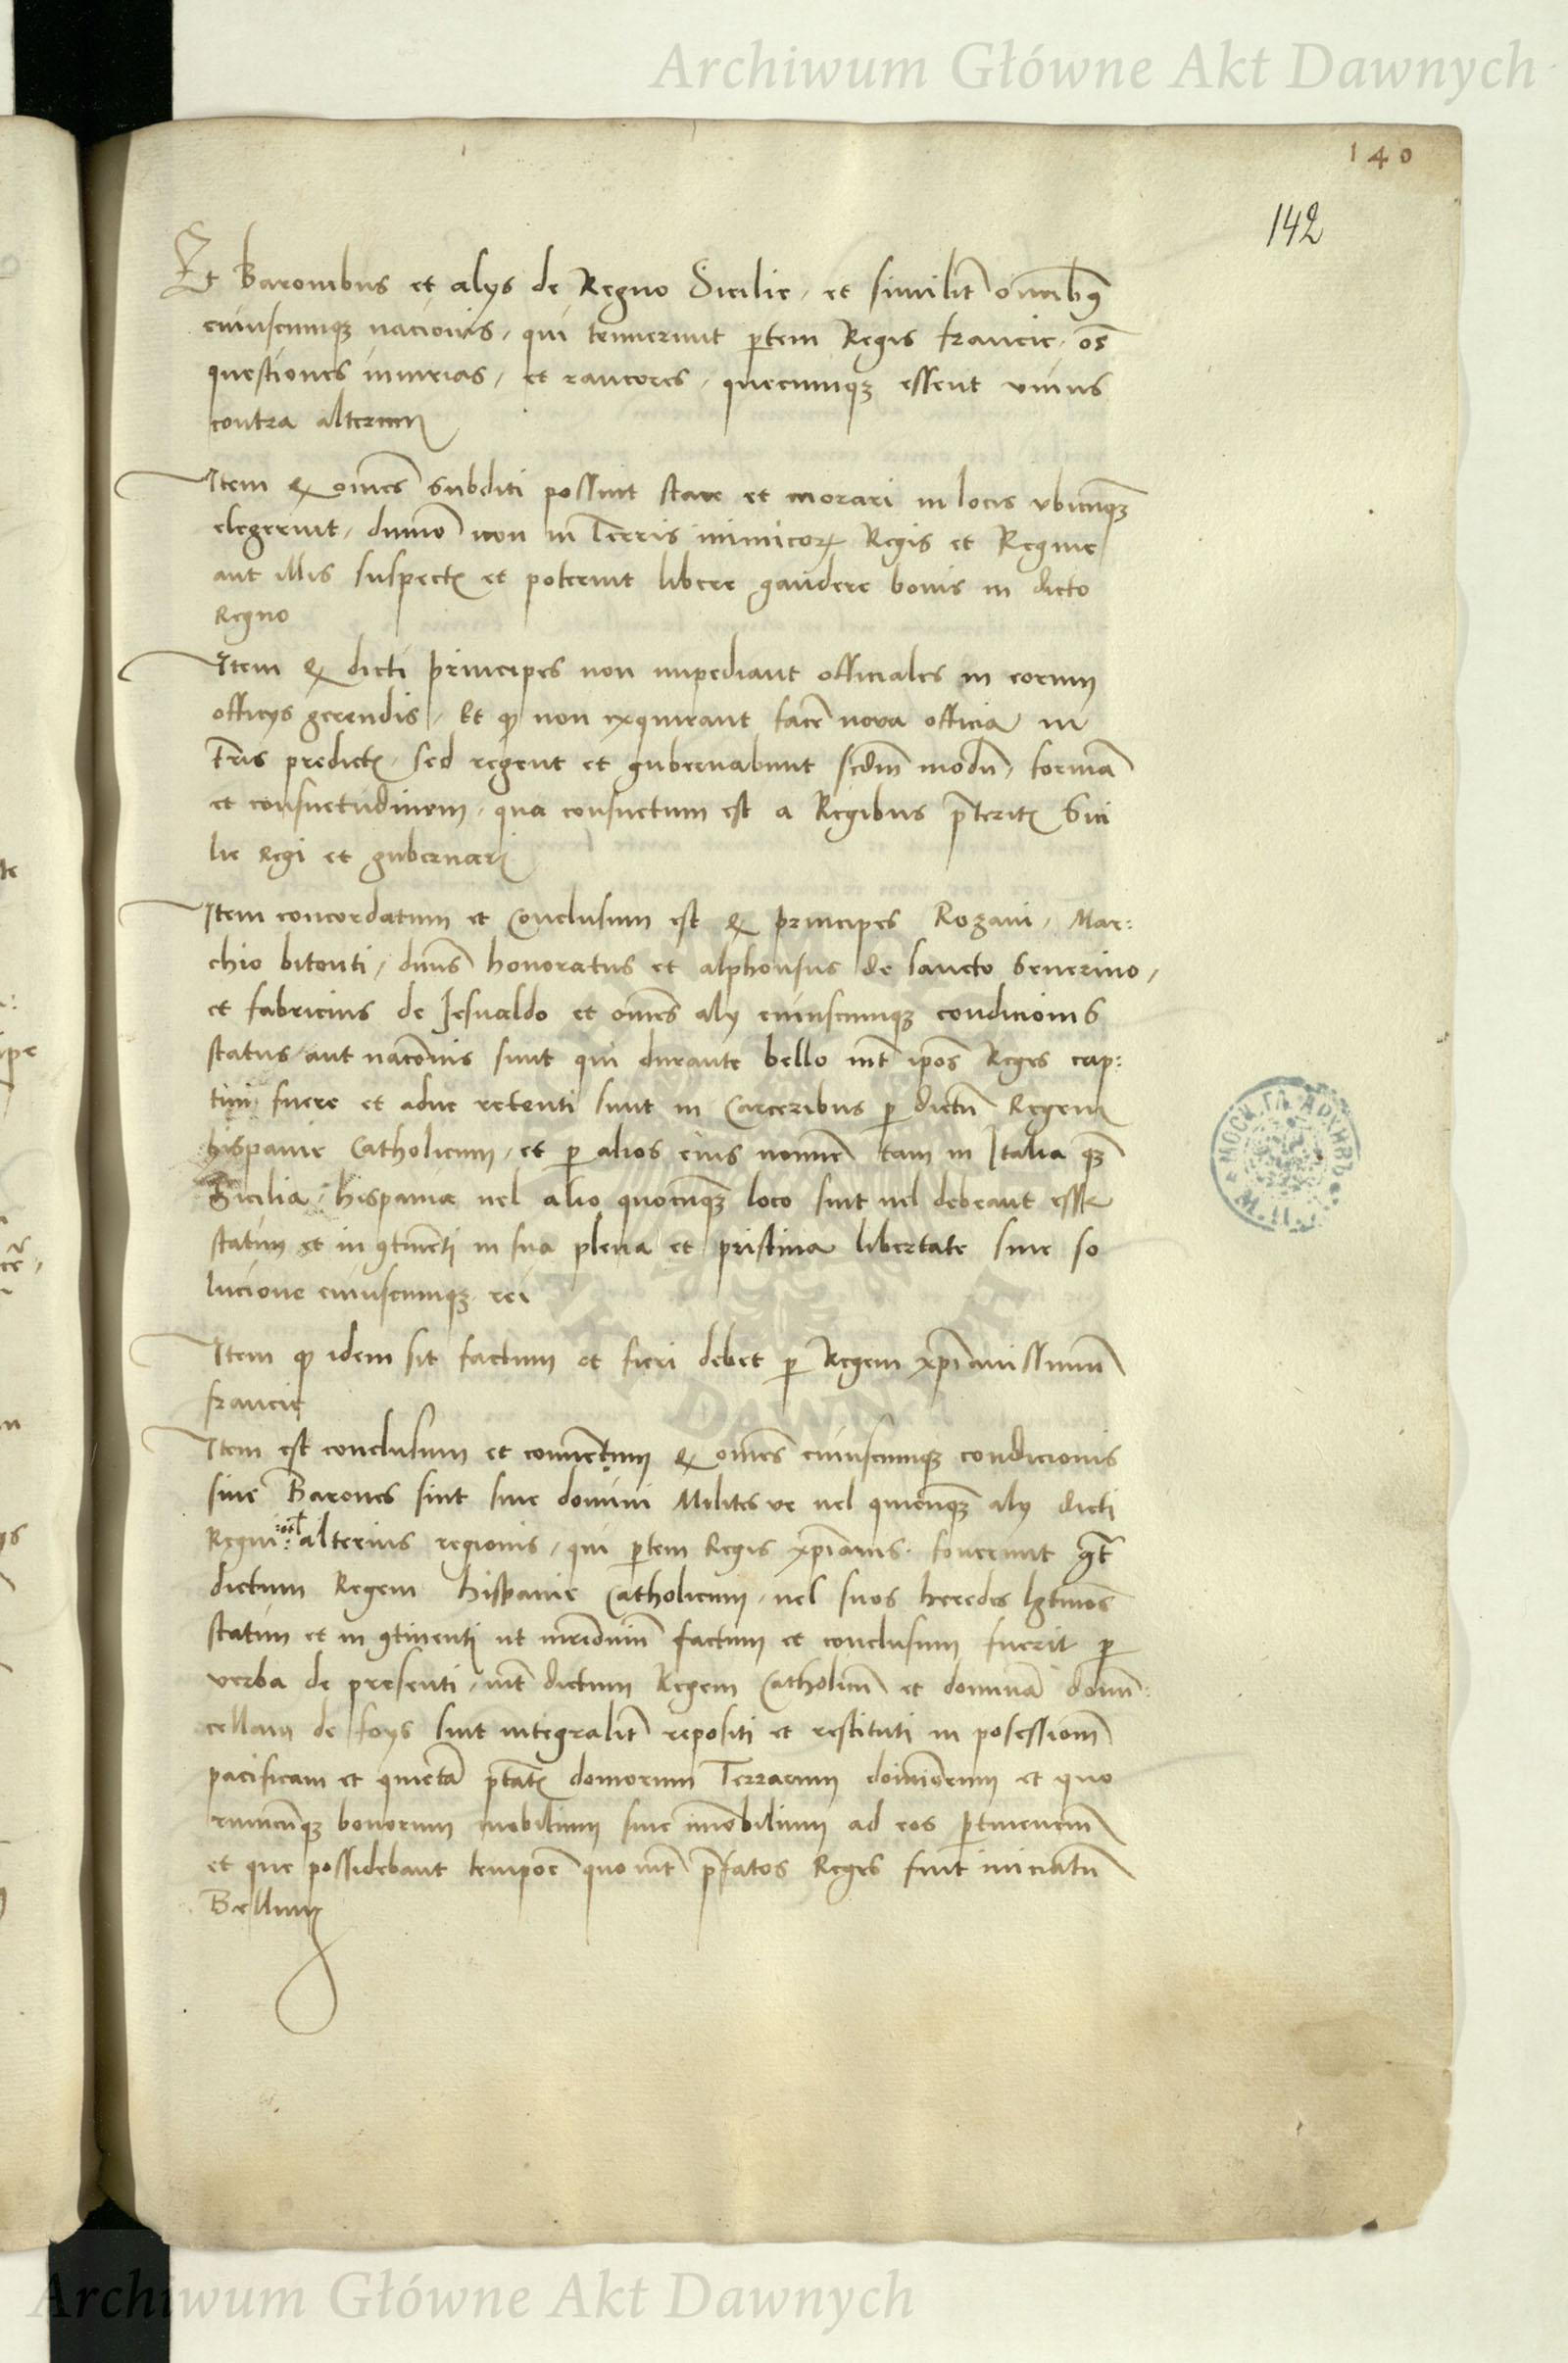 Archiwum Główne Akt Dawnych
140
142
Et Baronibus et alys de Regno Sicilie, et similit̄ omnibꝰ
cuiuscumqꝫ nacionis, qui tenuerunt ꝑtem Regis francie, oēs
questiones iniurias, et rancores, quecumqꝫ essent vnius
contra alterum
Item ꝙ omnēs subditi possint stare et morari in locis vbicumqꝫ
elegerint, dum̄o non in Terris inimicoꝝ Regis et Regine
aut illis suspectꝭ et poterint libere gaudere bonis in dicto
Regno
Item ꝙ dicti principes non impediant officiales in eorum
officys gerendis, Et ꝙ non exquirant facē nova officia in
t̄ris predictꝭ, sed regent et gubernabunt scdm̄ modū, formā
et consuetudinem, qua consuetum est a Regibus p̄teritꝭ Sici
lie regi et gubernari
Item concordatum et Conclusum est ꝙ principes Rozani, Mar:
chio bitonti, dnūs honoratus et alphonsus de sancto Seuerino,
et fabricius de Jesualdo et omēs aly cuiuscumqꝫ condicionis
status aut nacōnis sunt qui durante bello int̄ ipōs Reges cap:
tiui fuere et aduc retenti sunt in Carceribus ꝑ dictū Regem
hispanie Catholicum, et ꝑ alios eius nomīe tam in Italia qꝫ
Sicilia, hispania uel alio quocūqꝫ loco sint uel debeant esse
statim et in ꝯtinēti in sua plena et pristina libertate sine so
lucione cuiuscumqꝫ rei
Item ꝙ idem sit factum et fieri debet ꝑ Regem xp̄ianissimum
francie
Item est conclusum et conuentum ꝙ omēs cuiuscumqꝫ condicionis
siue Barones sint siue domini Militesve uel quicūqꝫ aly dicti
Regni alterius regionis, qui ꝑtem Regis xp̄ianis. fouerunt ꝯt̄
dictum Regem hispanie Catholicum, uel suos heredes lgtimos
statim et in ꝯtinenti ut mr̄imoniū factum et conclusum fuerit ꝑ
verba de presenti, int̄ dictum Regem Catholicū et dominā domi:
cellam de foys sint integralit̄ repositi et restituti in posessionē
pacificam et quietā domorum Terrarum dominiorum et quo
rumcūqꝫ bonorum mobilium siue imobilium ad eos ꝑtinenciū
et que possidebant tempoē quo int̄ p̄fatos Reges fuit iniciatū
Bellum
Archiwum Główne Akt Dawnych